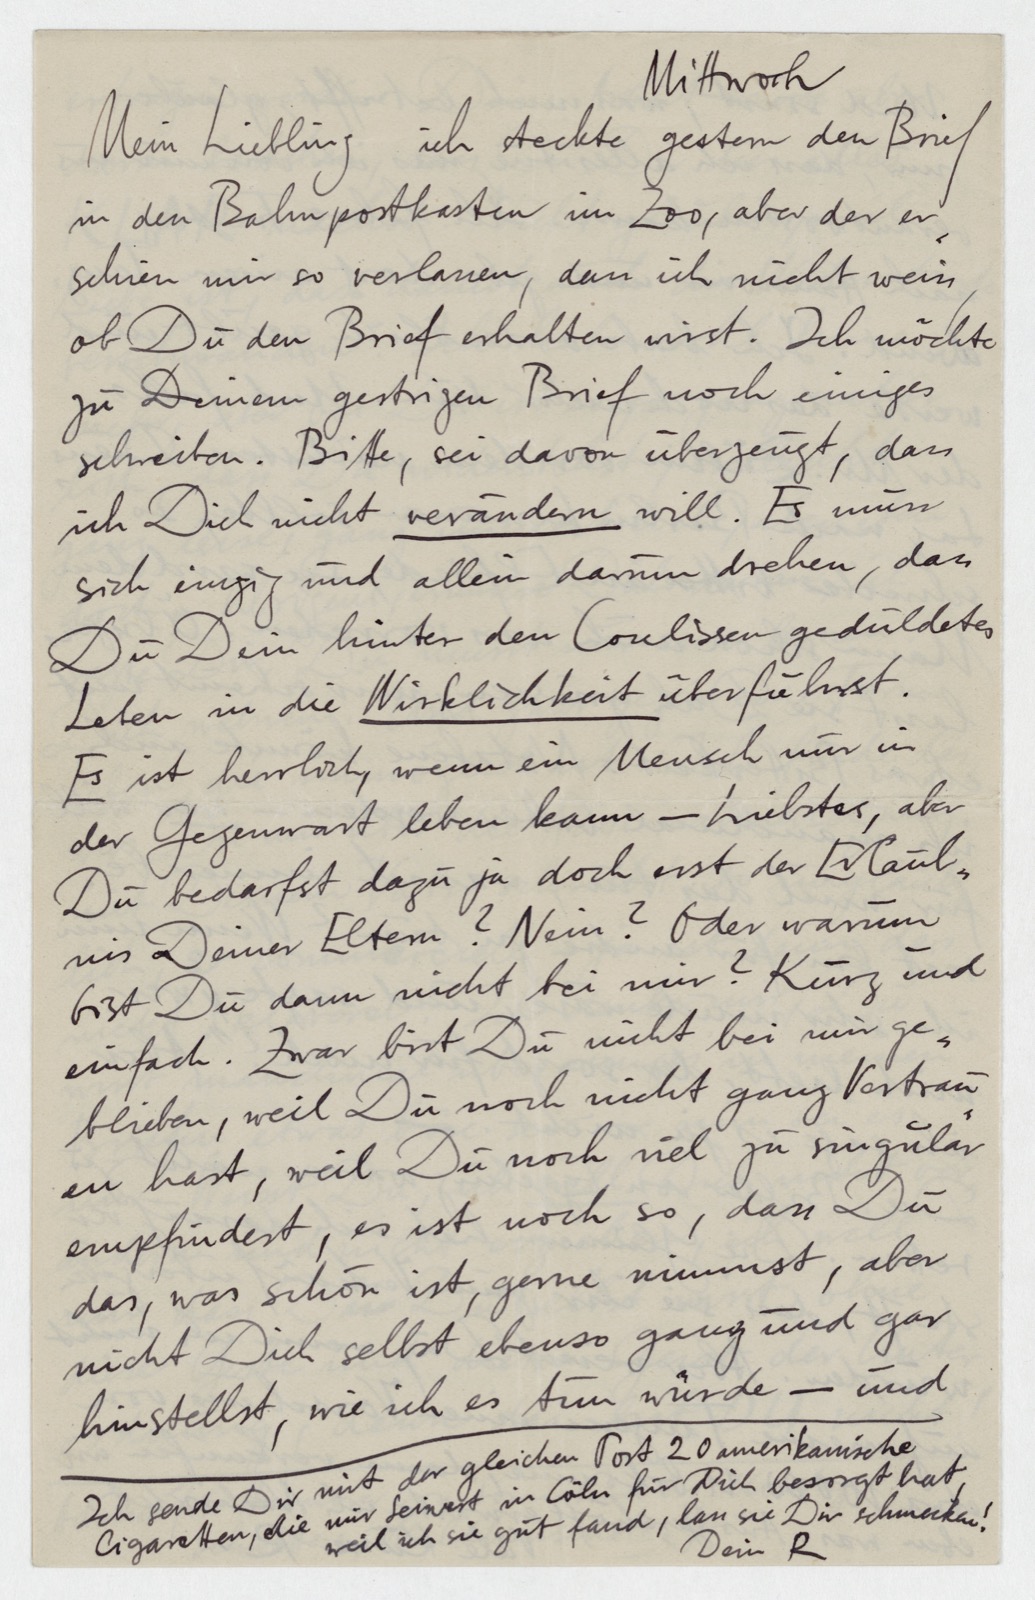 Mittwoch
Mein Liebling ich steckte gestern den Brief
in den Bahnpostkasten im Zoo, aber der er-
schien mir so verlassen, dass ich nicht weiss,
ob Du den Brief erhalten wirst. Ich möchte
zu Deinem gestrigen Brief noch einiges
schreiben. Bitte, sei davon überzeugt, dass
ich Dich nicht verändern will. Es muss
sich einzig und allein darum drehen, dass
Du Dein hinter den Coulissen geduldetes
Leben in die Wirklichkeit überführst.
Es ist herrlich, wenn ein Mensch nur in
der Gegenwart leben kann – Liebstes, aber
Du bedarfst dazu ja doch erst der Erlaub-
nis Deiner Eltern? Nein? Oder warum
bist Du dann nicht bei mir? Kurz und
einfach. Zwar bist Du nicht bei mir ge-
blieben, weil Du noch nicht ganz Vertrau-
en hast, weil Du noch viel zu singulär
empfindest, es ist noch so, dass Du
das, was schön ist, gerne nimmst, aber
nicht Dich selbst ebenso ganz und gar
hinstellst, wie ich es tun würde – und
Ich sende Dir mit der gleichen Post 20 amerikanische
Cigaretten, die mir Seiwert in Cöln für Dich besorgt hat,
weil ich sie gut fand, lass sie Dir schmecken!
Dein R